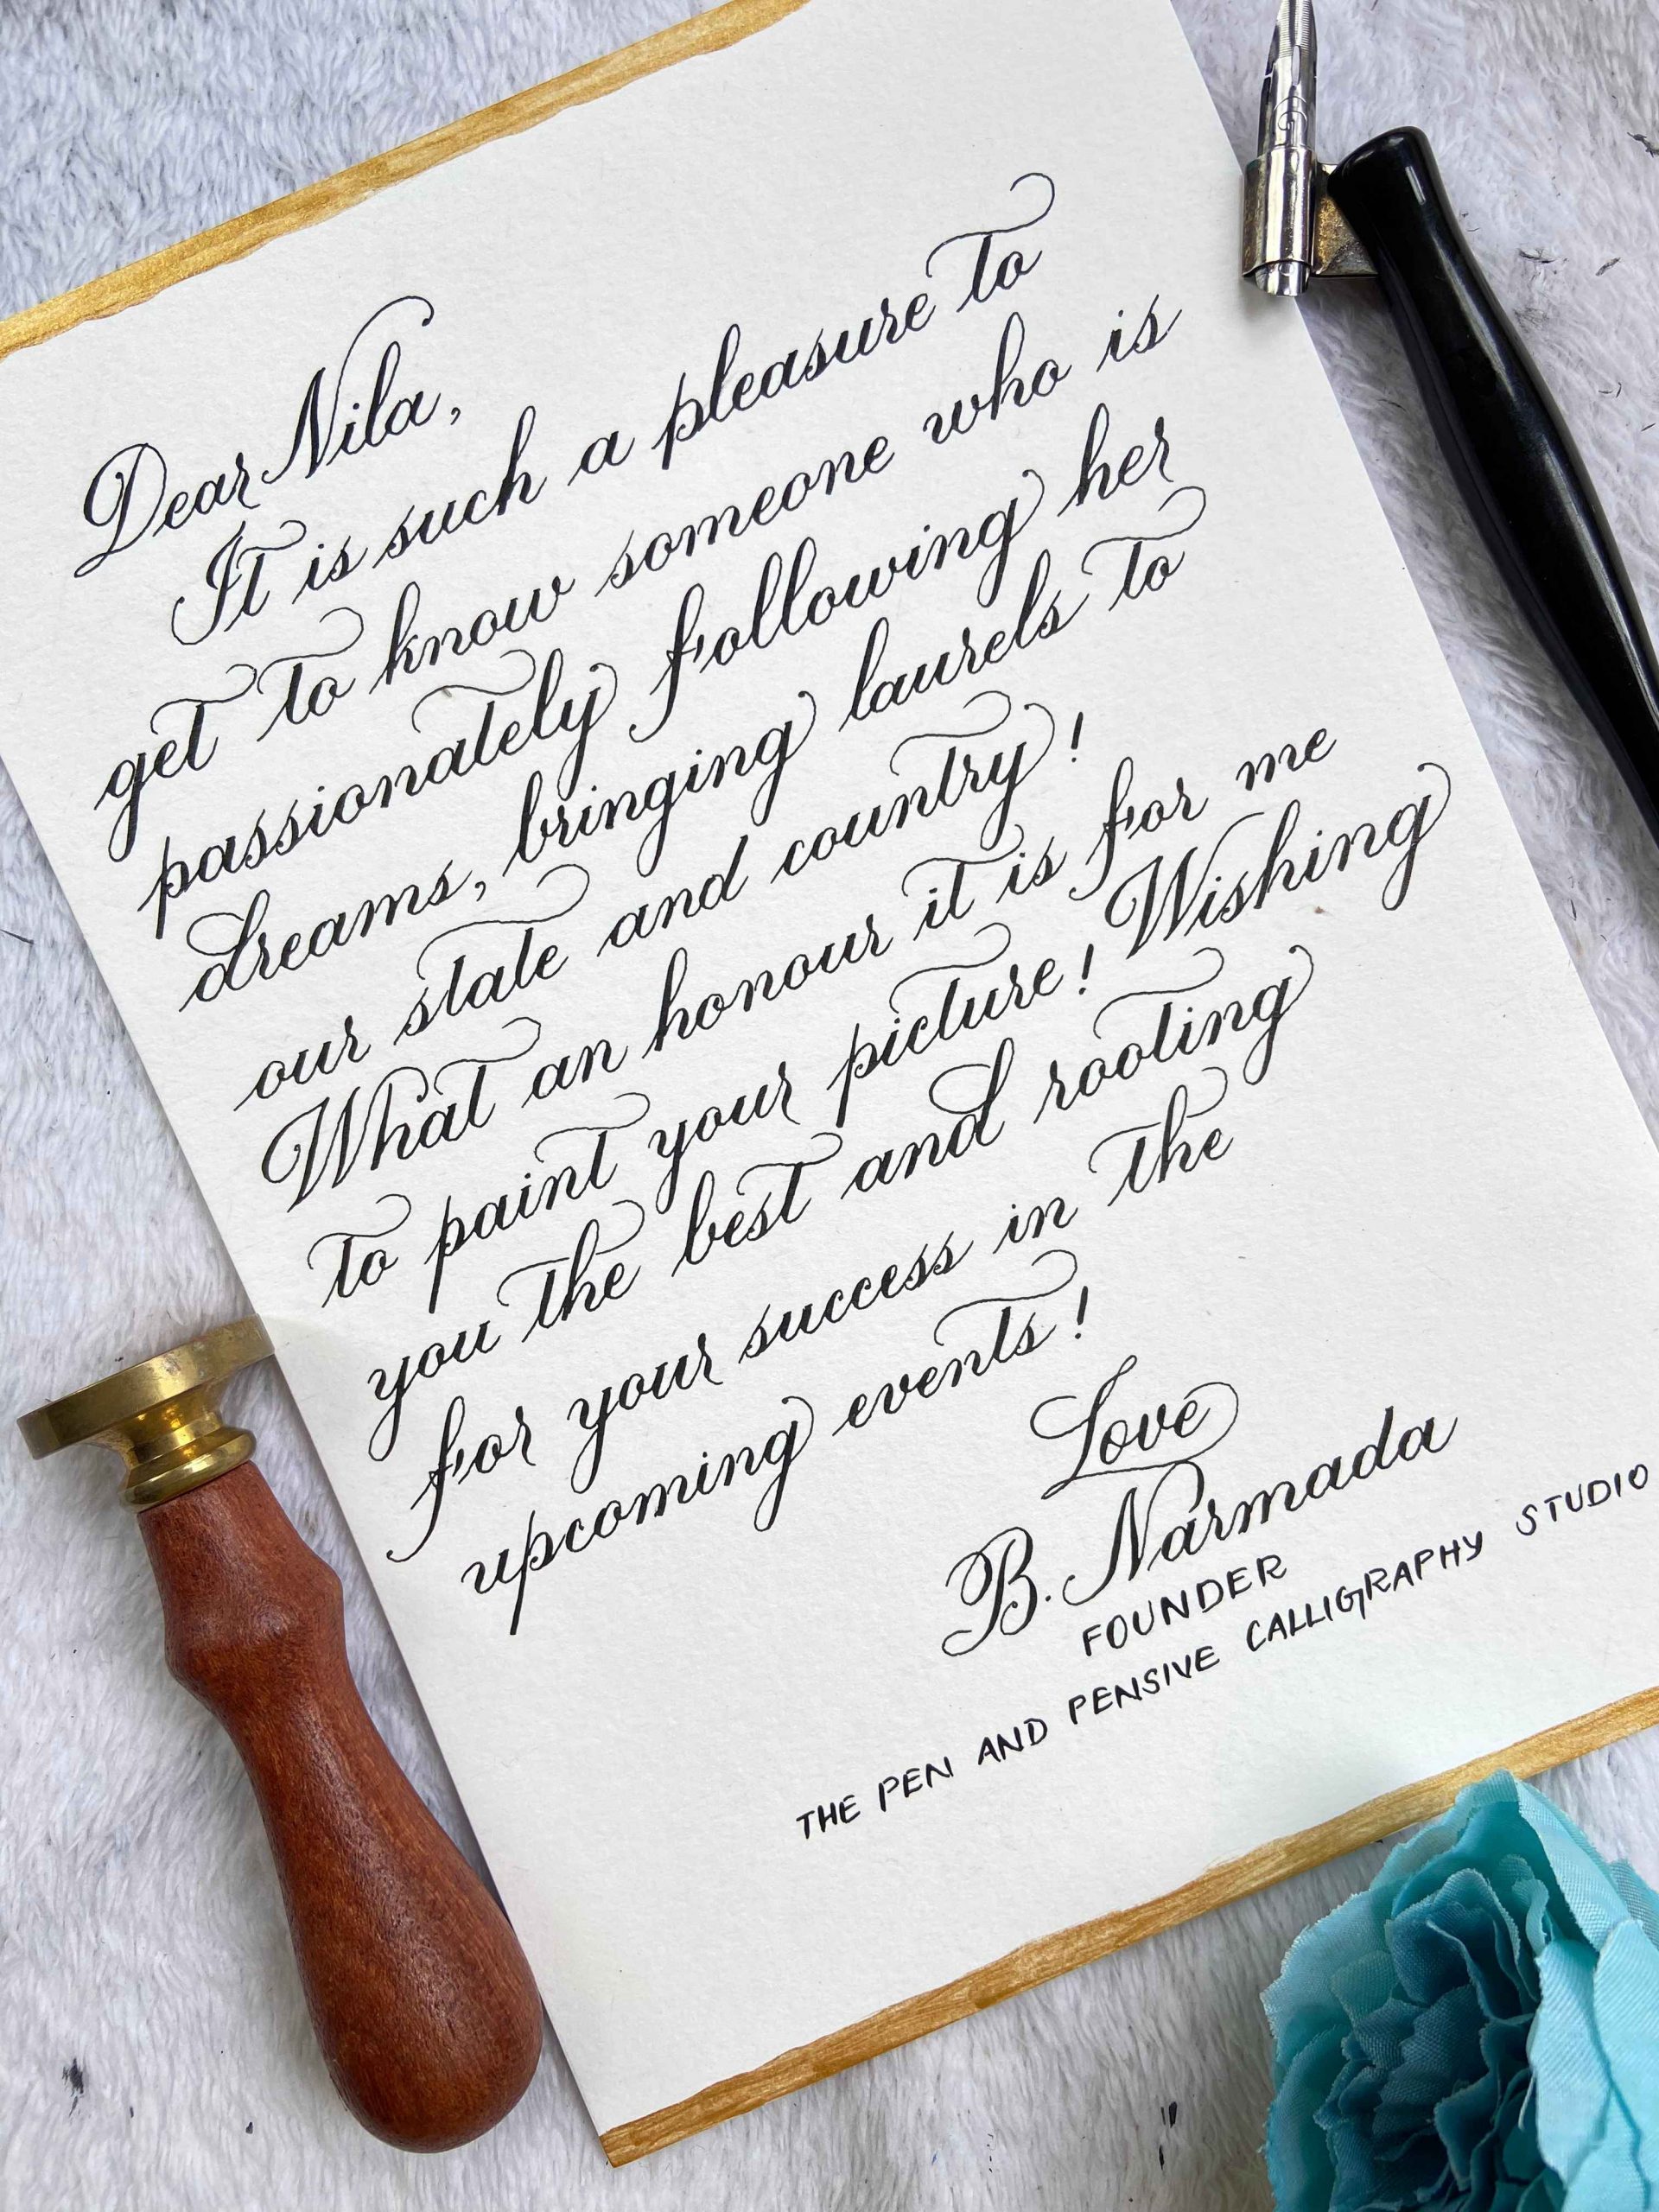 Dear Nila,
It is such a pleasure to
get to know someone who is
passionately following her
dreams, bringing laurels to
our state and country!
What an honour it is for me
to paint your picture! Wishing
you the best and rooting
for your success in the
upcoming events!
Love
B. Narmada
FOUNDER
THE PEN AND PENSIVE CALLIGRAPHY STUDIO
G